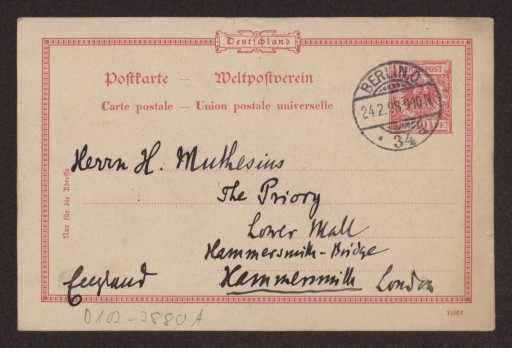 Deutschland
Postkarte — Weltpostverein
Carte postale — Union postale universelle
BERLIN.O.
24.2.98.9-10N
34
Nur für die Adresse
Herrn H. Muthesius
The Priory
Lower Mall
Hammersmith-Bridge
England Hammersmith London
D102-2880A